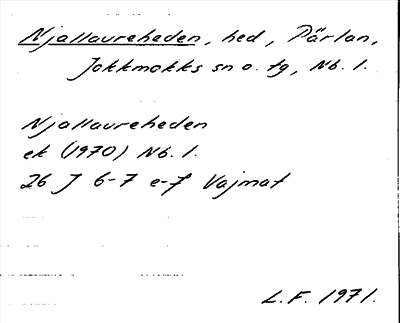 Njallaureheden, hed, Pärlan,
Jokkmokks sn o. tg, Nb. l.
Njallaureheden
ek (1970) Nb. l.
26 J 6-7 e-f Vajmat
L.F. 1971.